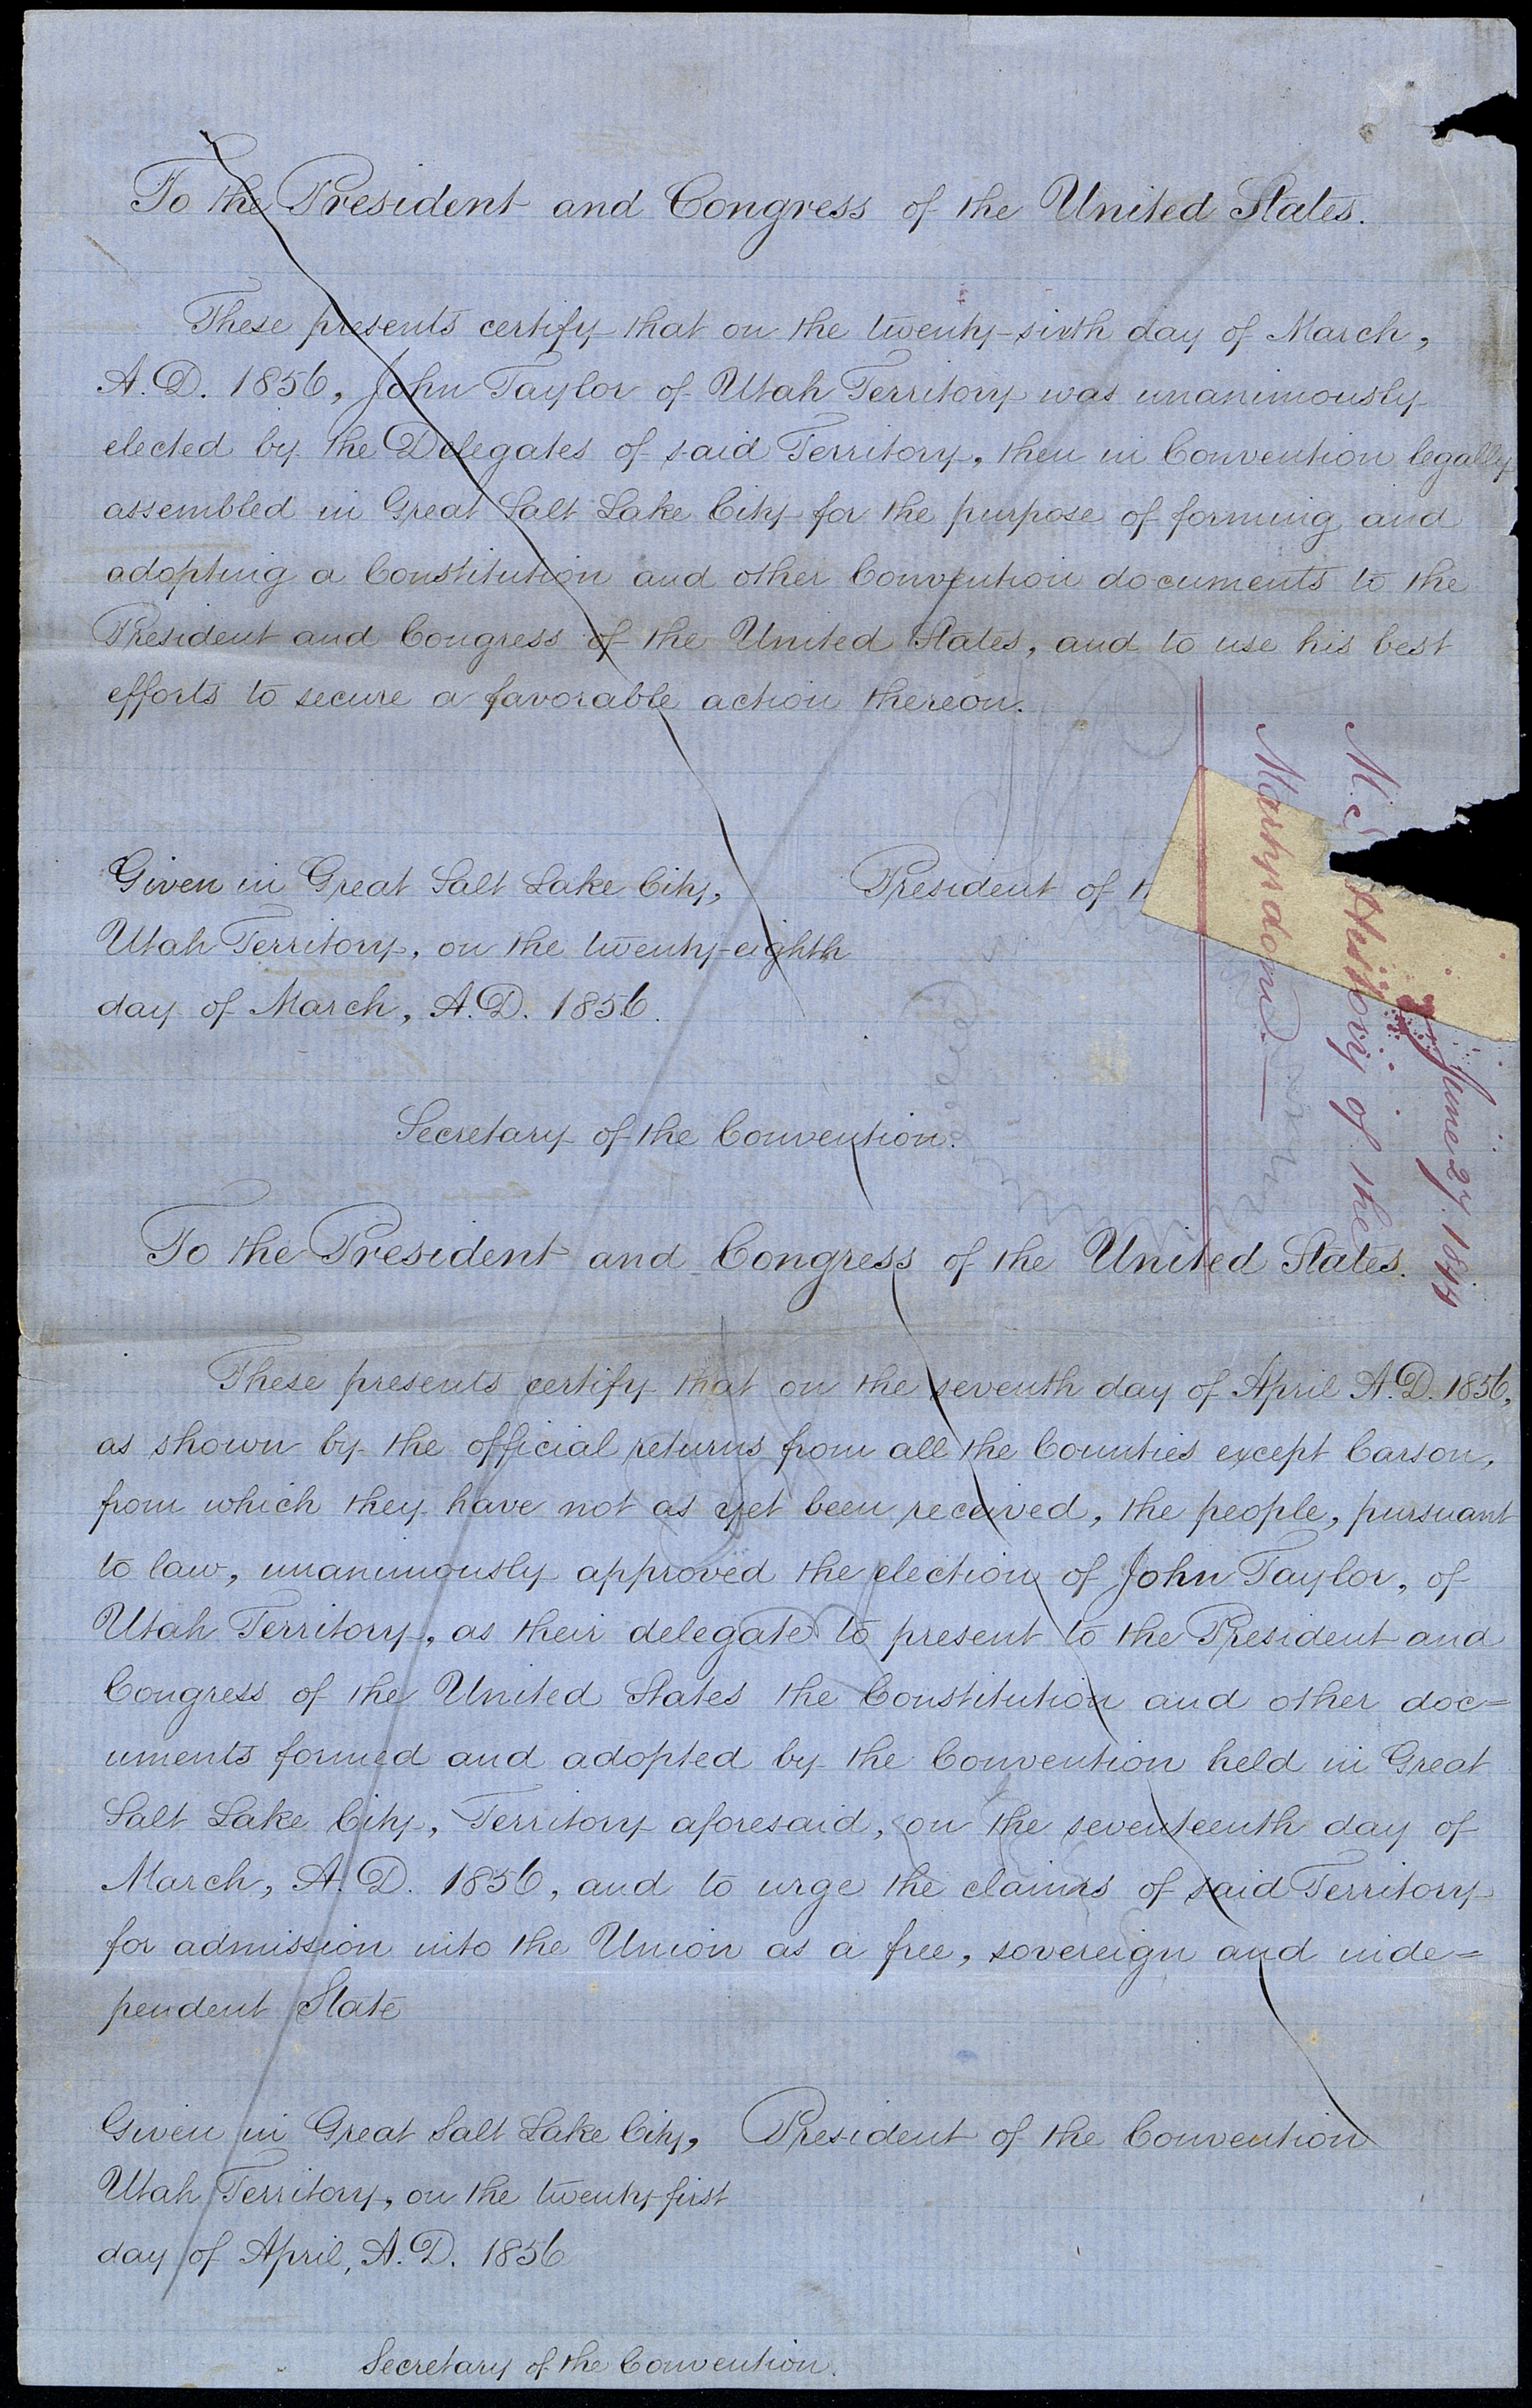 To the President and Congress of the United States.
These presents certify that on the twenty-sixth day of March,
A.D. 1856, John Taylor of Utah Territory was unanimously
elected by the Delegates of said Territory, then in Convention legally
assembled in Great Salt Lake City for the purpose of forming and
adopting a Constitution and other Convention documents to the
President and Congress of the United States, and to use his best
efforts to secure a favorable action thereon.
Given in Great Salt Lake City, President of
Utah Territory, on the twenty-eighth
day of March, A.D. 1856.
Secretary of the Convention.
June 27. 1844
History of the
Martyrdom.
To the President and Congress of the United States.
These presents certify that on the seventh day of April A.D. 1856,
as shown by the official returns from all the Counties except Carson,
from which they have not as yet been received, the people, pursuant
to law, unanimously approved the election of John Taylor, of
Utah Territory, as their delegate to present to the President and
Congress of the United States the Constitution and other doc=
uments formed and adopted by the Convention held in Great
Salt Lake City, Territory aforesaid, on the seventeenth day of
March, A.D. 1856, and to urge the claims of said Territory
for admission into the Union as a free, sovereign and inde=
pendent State
Given in Great Salt Lake City, President of the Convention
Utah Territory, on the twenty-first
day of April, A.D. 1856
Secretary of the Convention.